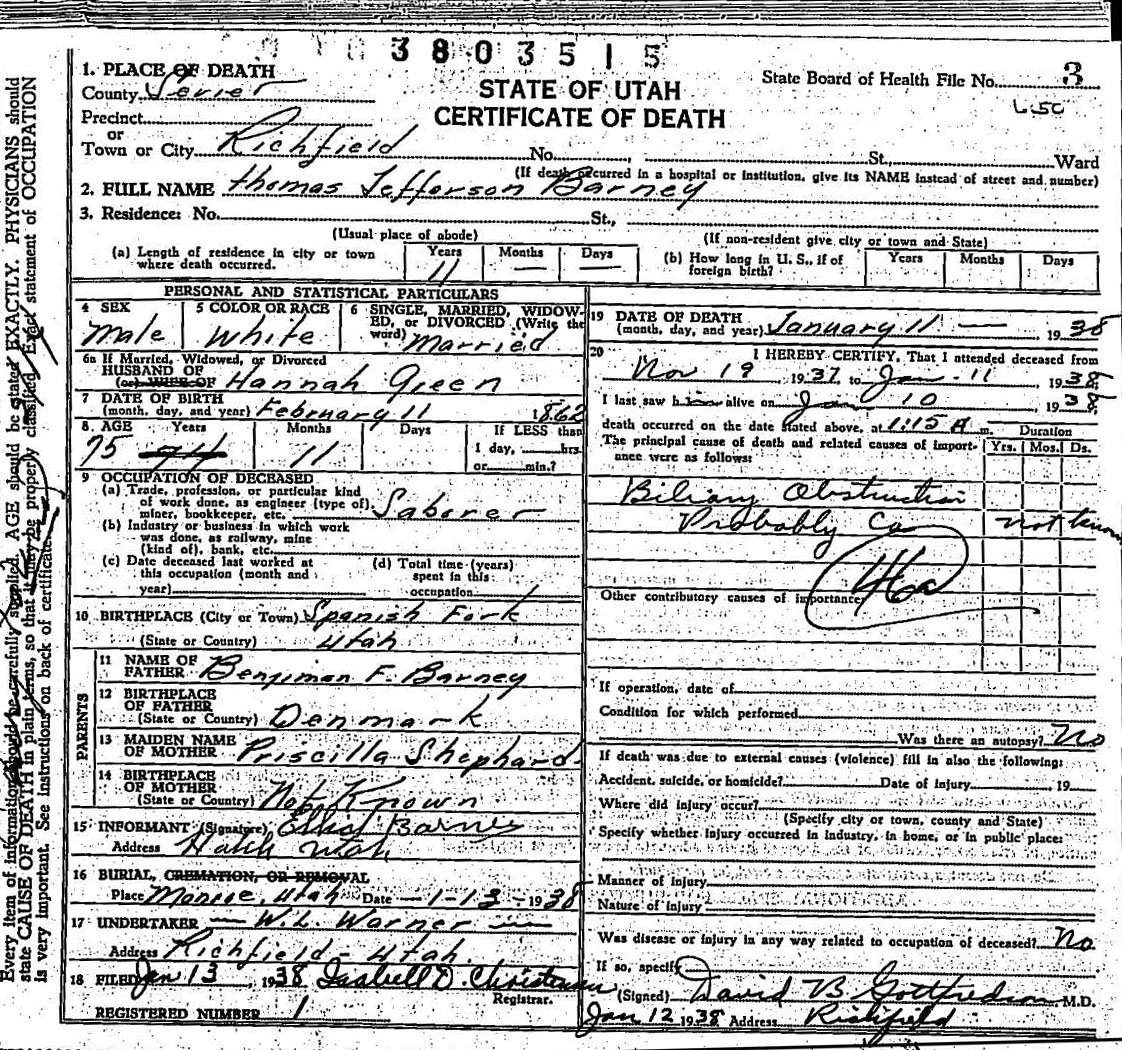 3803515
1. PLACE OF DEATH
County Sevier
STATE OF UTAH
CERTIFICATE OF DEATH
State Board of Health File No. 3
Precinct
or
Town or City Richfield No. , St., Ward
(If death occurred in a hospital or institution, give its NAME instead of street and number)
2. FULL NAME Thomas Jefferson Barney
3. Residence: No. St.,
(Usual place of abode) (If non-resident give city or town and State)
(a) Length of residence in city or town where death occurred. Years 11 Months — Days —
(b) How long in U. S., if of foreign birth? Years Months Days
PERSONAL AND STATISTICAL PARTICULARS
4 SEX Male
5 COLOR OR RACE White
6 SINGLE, MARRIED, WIDOWED, or DIVORCED (Write the word) Married
6a If Married, Widowed, or Divorced
HUSBAND OF
(or) WIFE OF Hannah Green
7 DATE OF BIRTH
(month, day, and year) February 11 1862
8. AGE Years 75 74 Months 11 Days If LESS than
1 day, hrs.
or min.?
9 OCCUPATION OF DECEASED
(a) Trade, profession, or particular kind
of work done, as engineer (type of)
miner, bookkeeper, etc. Laborer
(b) Industry or business in which work
was done, as railway, mine
(kind of), bank, etc.
(c) Date deceased last worked at
this occupation (month and
year)
(d) Total time (years)
spent in this
occupation
10 BIRTHPLACE (City or Town) Spanish Fork
(State or Country) Utah
PARENTS
11 NAME OF
FATHER Benjiman F. Barney
12 BIRTHPLACE
OF FATHER
(State or Country) Denmark
13 MAIDEN NAME
OF MOTHER Priscilla Shephard
14 BIRTHPLACE
OF MOTHER
(State or Country) Not Known
15 INFORMANT (Signature) Barney
Address Hatch Utah
16 BURIAL, CREMATION, OR REMOVAL
Place Monroe, Utah Date 1-13-1938
17 UNDERTAKER — W. L. Warner —
Address Richfield - Utah.
18 FILED Jan 13, 1938 Isabell D. Christensen
Registrar.
REGISTERED NUMBER 1
19 DATE OF DEATH
(month, day, and year) January 11 — 1938
20 I HEREBY CERTIFY, That I attended deceased from
Nov 19, 1937, to Jan - 11 1938
I last saw him alive on Jan 10 1938
death occurred on the date stated above, at 1:15 A m. Duration
The principal cause of death and related causes of importance were as follows: Yrs. Mos. Ds.
Biliary Obstruction
Probably Ca not know
46a
Other contributory causes of importance:
If operation, date of
Condition for which performed
Was there an autopsy? No
If death was due to external causes (violence) fill in also the following:
Accident, suicide, or homicide? Date of injury 19
Where did injury occur?
(Specify city or town, county and State)
Specify whether injury occurred in industry, in home, or in public place:
Manner of injury
Nature of injury
Was disease or injury in any way related to occupation of deceased? No
If so, specify
(Signed) David B Gottfredson M.D.
Jan 12 1938 Address Richfield
Every item of information should be carefully supplied. AGE should be stated EXACTLY. PHYSICIANS should
state CAUSE OF DEATH in plain terms, so that it may be properly classified. Exact statement of OCCUPATION
is very important. See instructions on back of certificate.